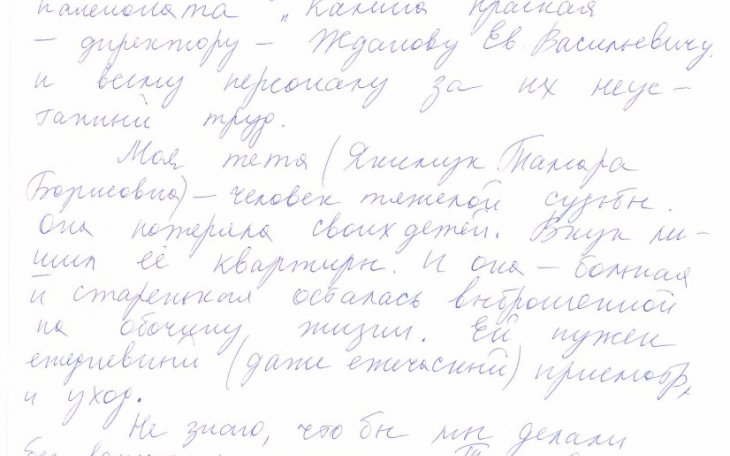 пансионата "Калина красная
– директору – Жданову Ев. Васильевичу.
и всему персоналу за их неус-
танный труд.
Моя тетя (Якимук Тамара
Борисовна) – человек тяжелой судьбы.
Она потеряла своих детей. Внук ли-
шил её квартиры. И она – больная
и старенькая осталась выброшенной
на обочину жизни. Ей нужен
ежедневный (даже ежечасный) присмотр,
и уход.
Не знаю, что бы мы делали
без